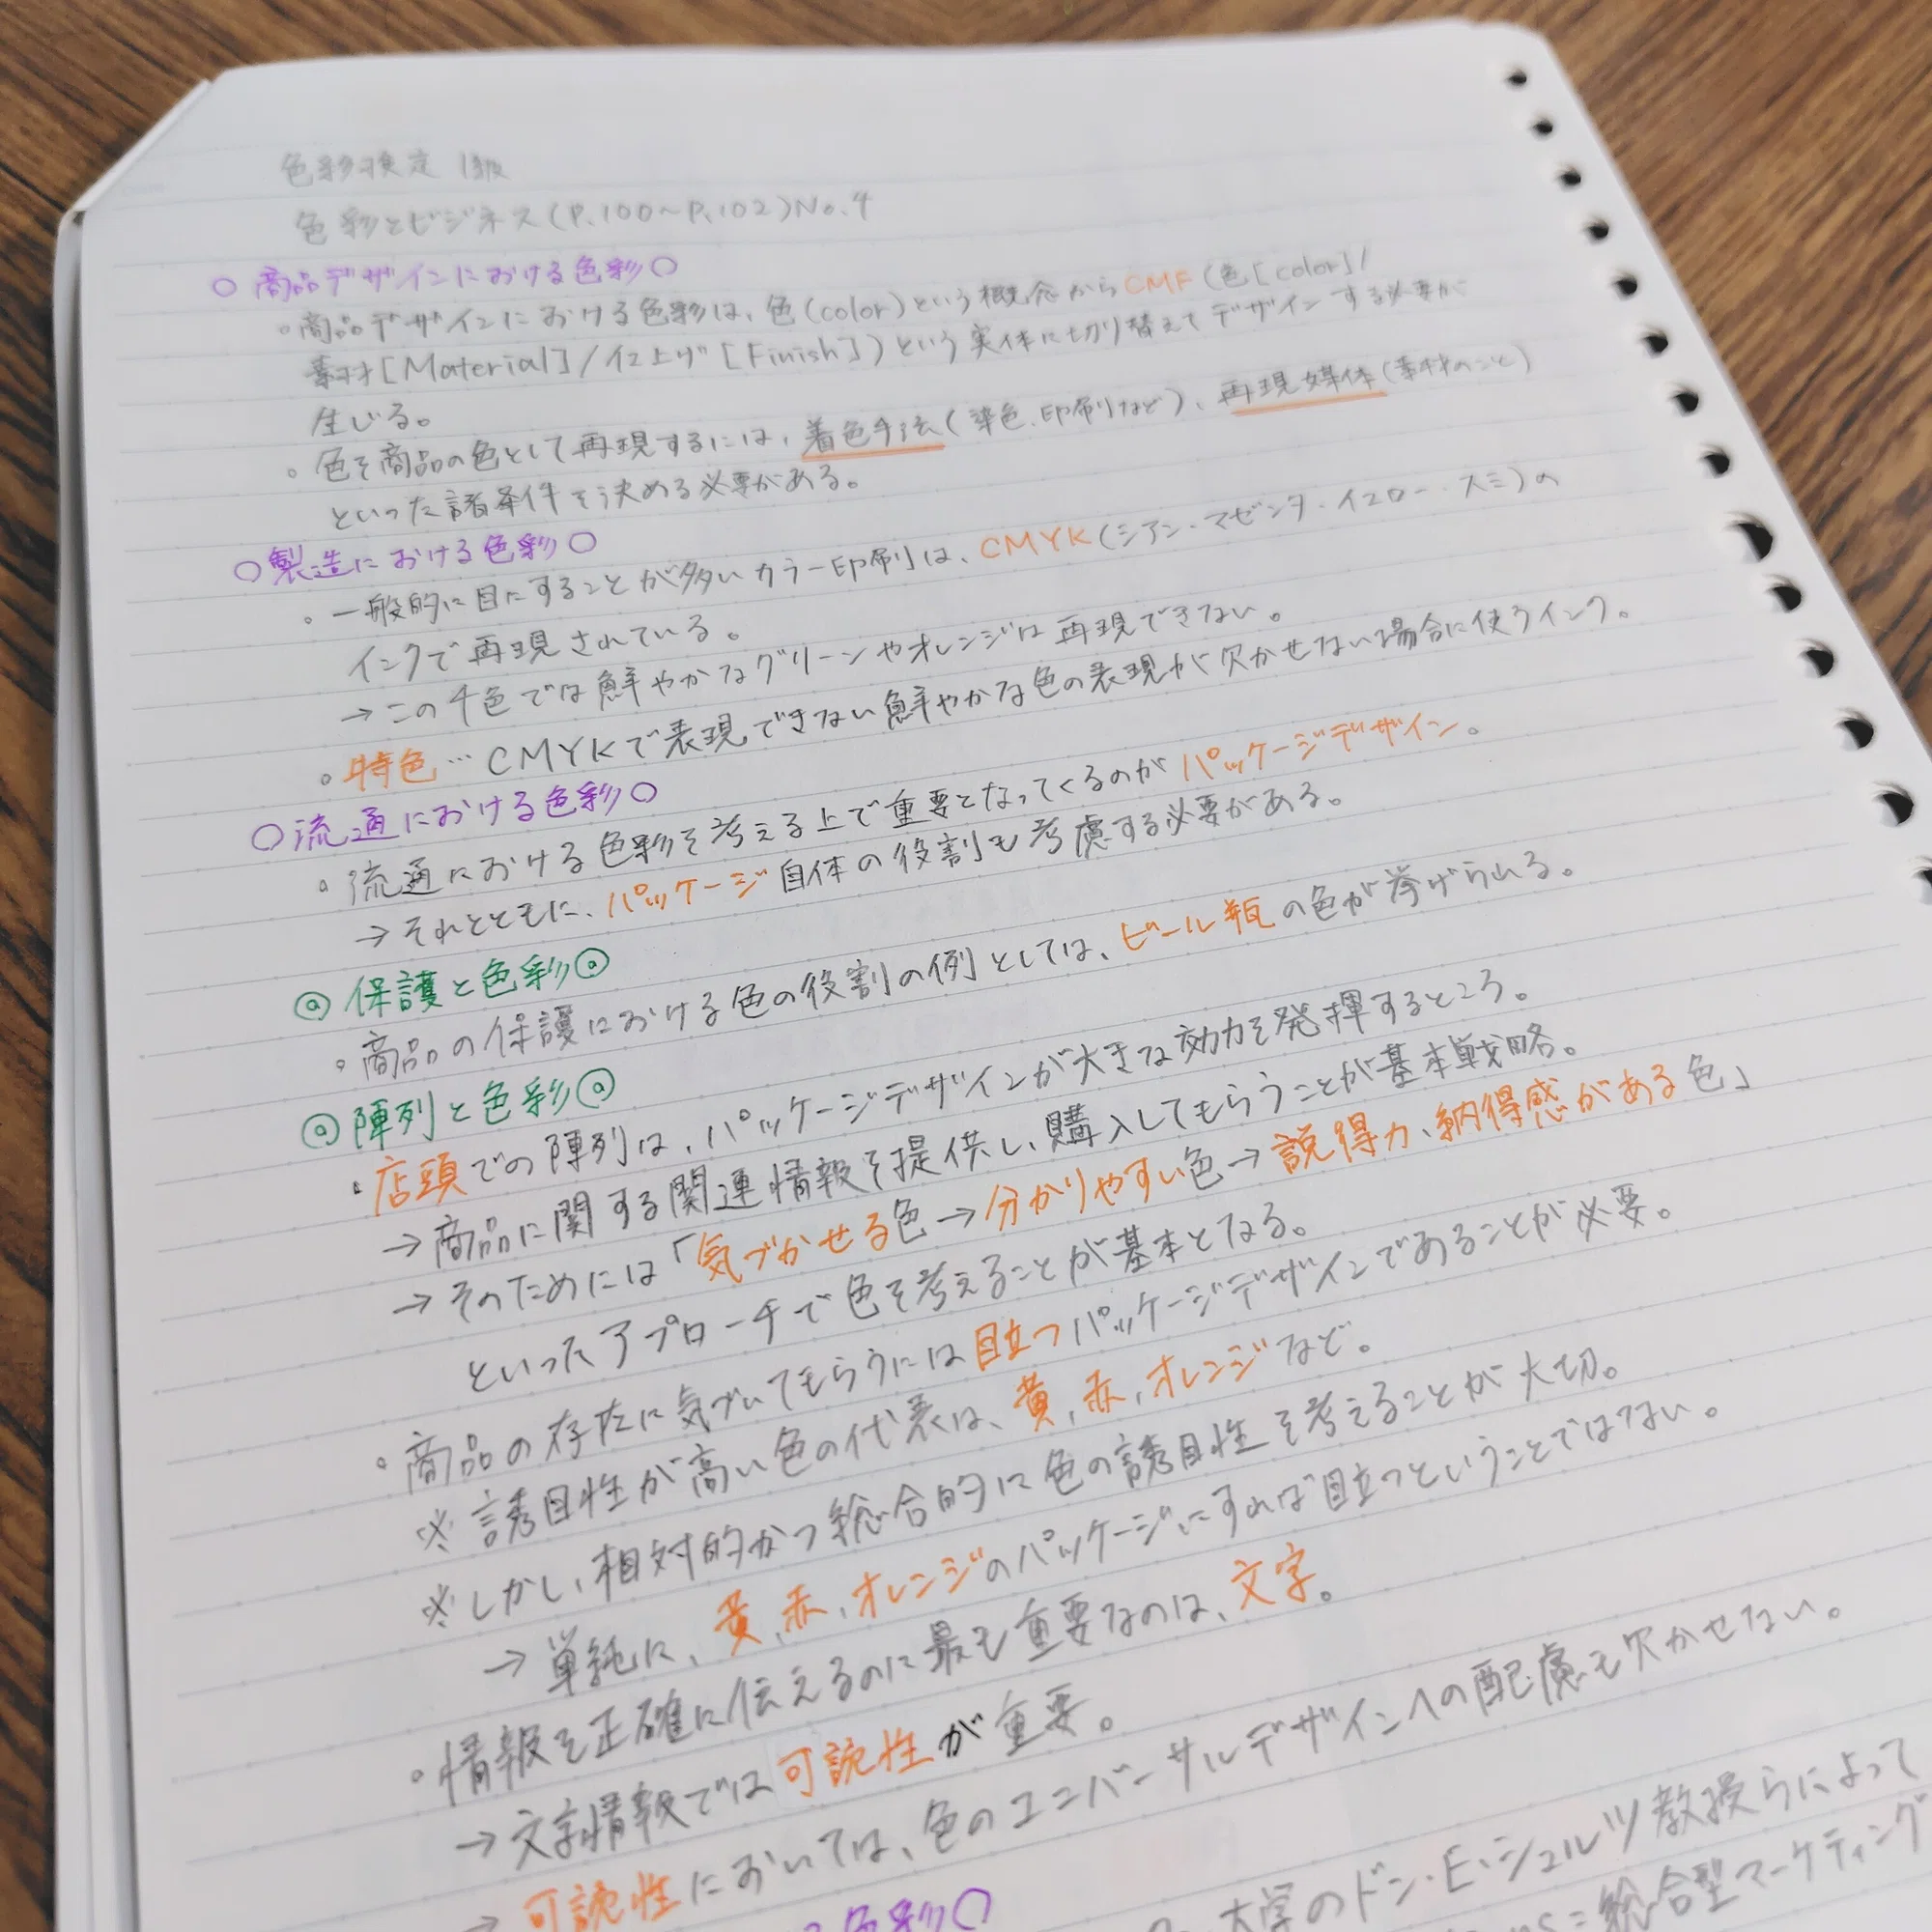 色彩検定 1級
色彩とビジネス(P.100〜P.102)No.4
○商品デザインにおける色彩○
・商品デザインにおける色彩は、色(color)という概念からCMF(色[color]/
素材[Material]/仕上げ[Finish])という実体に切り替えてデザインする必要が
生じる。
・色を商品の色として再現するには、着色手法(染色、印刷など)、再現媒体(素材のこと)
といった諸条件を決める必要がある。
○製造における色彩○
・一般的に目にすることが多いカラー印刷は、CMYK(シアン・マゼンタ・イエロー・スミ)の
インクで再現されている。
→この4色では鮮やかなグリーンやオレンジは再現できない。
・特色…CMYKで表現できない鮮やかな色の表現が欠かせない場合に使うインク。
○流通における色彩○
・流通における色彩を考える上で重要となってくるのがパッケージデザイン。
→それとともに、パッケージ自体の役割も考慮する必要がある。
◎保護と色彩◎
・商品の保護における色の役割の例としては、ビール瓶の色が挙げられる。
◎陳列と色彩◎
・店頭での陳列は、パッケージデザインが大きな効力を発揮するところ。
→商品に関する関連情報を提供し、購入してもらうことが基本戦略。
→そのためには「気づかせる色→分かりやすい色→説得力、納得感がある色」
といったアプローチで色を考えることが基本となる。
・商品の存在に気づいてもらうには目立つパッケージデザインであることが必要。
※誘目性が高い色の代表は、黄,赤,オレンジなど。
※しかし、相対的かつ総合的に色の誘目性を考えることが大切。
→単純に、黄,赤,オレンジのパッケージにすれば目立つということではない。
・情報を正確に伝えるのに最も重要なのは、文字。
→文字情報では可読性が重要。
→可読性においては、色のユニバーサルデザインへの配慮も欠かせない。
色彩○
大学のドン・E・シュルツ教授らによって
=総合型マーケティング